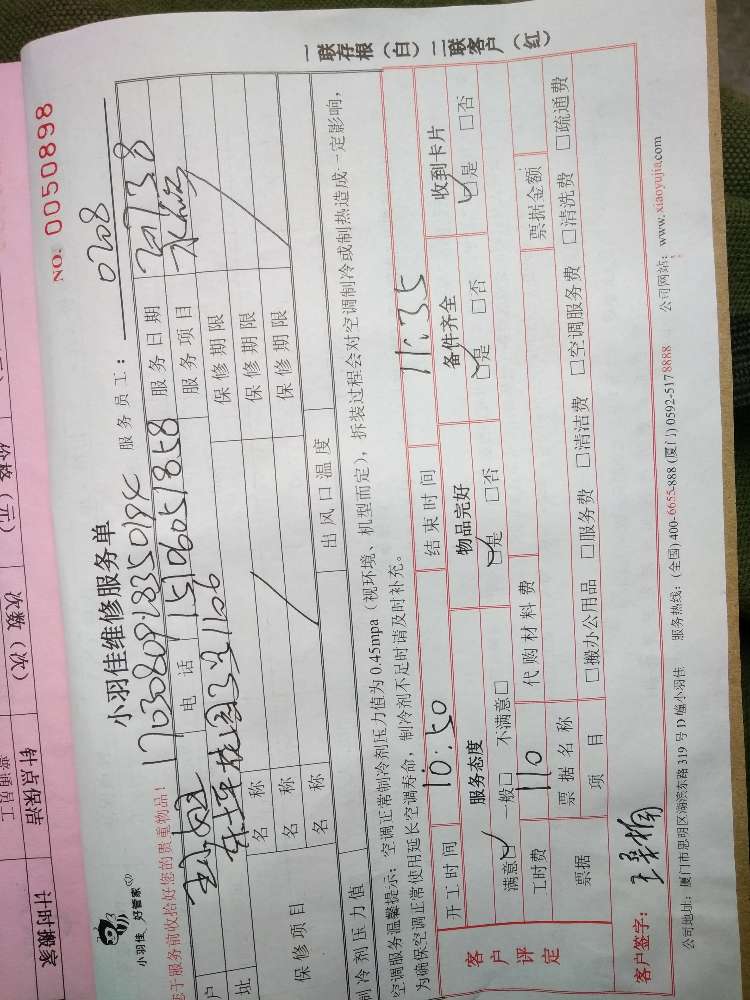 一联存根（白） 二联客户（红）
NO. 0050898
小羽佳 好管家
小羽佳维修服务单
服务员工： 0708
您于服务前收拾好您的贵重物品！
户
电 话 15106051858
服务日期 2017 3 8
址
服务项目
保修项目
名 称
保修期限
名 称
保修期限
名 称
保修期限
制冷剂压力值
出风口温度
空调服务温馨提示：空调正常制冷剂压力值为0.45mpa（视环境、机型而定），拆装过程会对空调制冷或制热造成一定影响，
为确保空调正常使用延长空调寿命，制冷剂不足时请及时补充。
客户评定
开工时间 10:50 结束时间 11:35
服务态度 物品完好 备件齐全 收到卡片
满意☑ 一般□ 不满意□ ☑是 □否 ☑是 □否 ☑是 □否
工时费 110 代购材料费
票据
票据名称
票据金额
项 目 □搬办公用品 □服务费 □清洁费 □空调服务费 □清洗费 □疏通费
客户签字：
公司地址：厦门市思明区湖滨东路319号D幢小羽佳 服务热线：(全国)400-6655-888 (厦门)0592-5178888 公司网站：www.xiaoyujia.com
价格（元）
次数（次）
针点保洁
普通员工
计时搬家